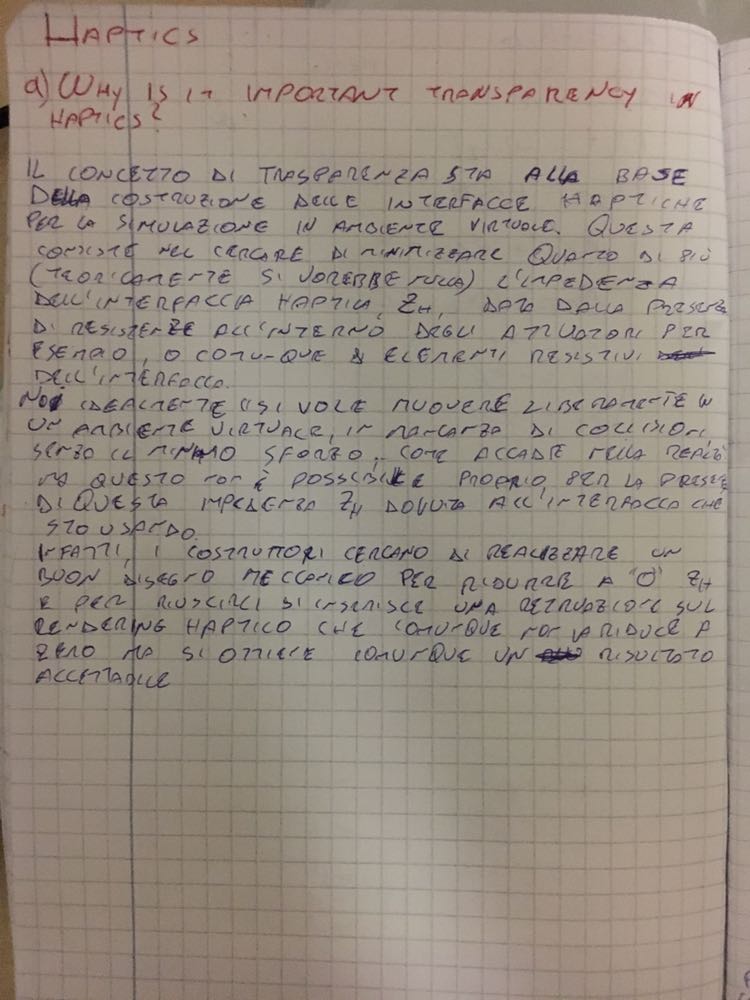 HAPTICS
a) WHY IS IT IMPORTANT TRANSPARENCY IN
HAPTICS?
IL CONCETTO DI TRASPARENZA STA ALLA BASE
DELLA COSTRUZIONE DELLE INTERFACCE HAPTICHE
PER LA SIMULAZIONE IN AMBIENTE VIRTUALE. QUESTA
CONSISTE NEL CERCARE DI MINIMIZZARE QUANTO DI PIÙ
(TEORICAMENTE SI VORREBBE NULLA) L'IMPEDENZA
DELL'INTERFACCIA HAPTICA, ZH, DATA DALLA PRESENZA
DI RESISTENZE ALL'INTERNO DEGLI ATTUATORI PER
ESEMPIO, O COMUNQUE ELEMENTI RESISTIVI
DELL'INTERFACCIA.
NOI IDEALMENTE CI SI VOLE MUOVERE LIBERAMENTE IN
UN AMBIENTE VIRTUALE, IN MANCANZA DI COLLISIONI,
SENZA IL MINIMO SFORZO, COME ACCADE NELLA REALTÀ
MA QUESTO NON È POSSIBILE PROPRIO PER LA PRESENZA
DI QUESTA IMPEDENZA ZH DOVUTA ALL'INTERFACCIA CHE
STO USANDO.
INFATTI, I COSTRUTTORI CERCANO DI REALIZZARE UN
BUON DISEGNO MECCANICO PER RIDURRE A "0" ZH
E PER RIUSCIRCI SI INSERISCE UNA RETROAZIONE SUL
RENDERING HAPTICO CHE COMUNQUE NON LA RIDUCE A
ZERO MA SI OTTIENE COMUNQUE UN RISULTATO
ACCETTABILE